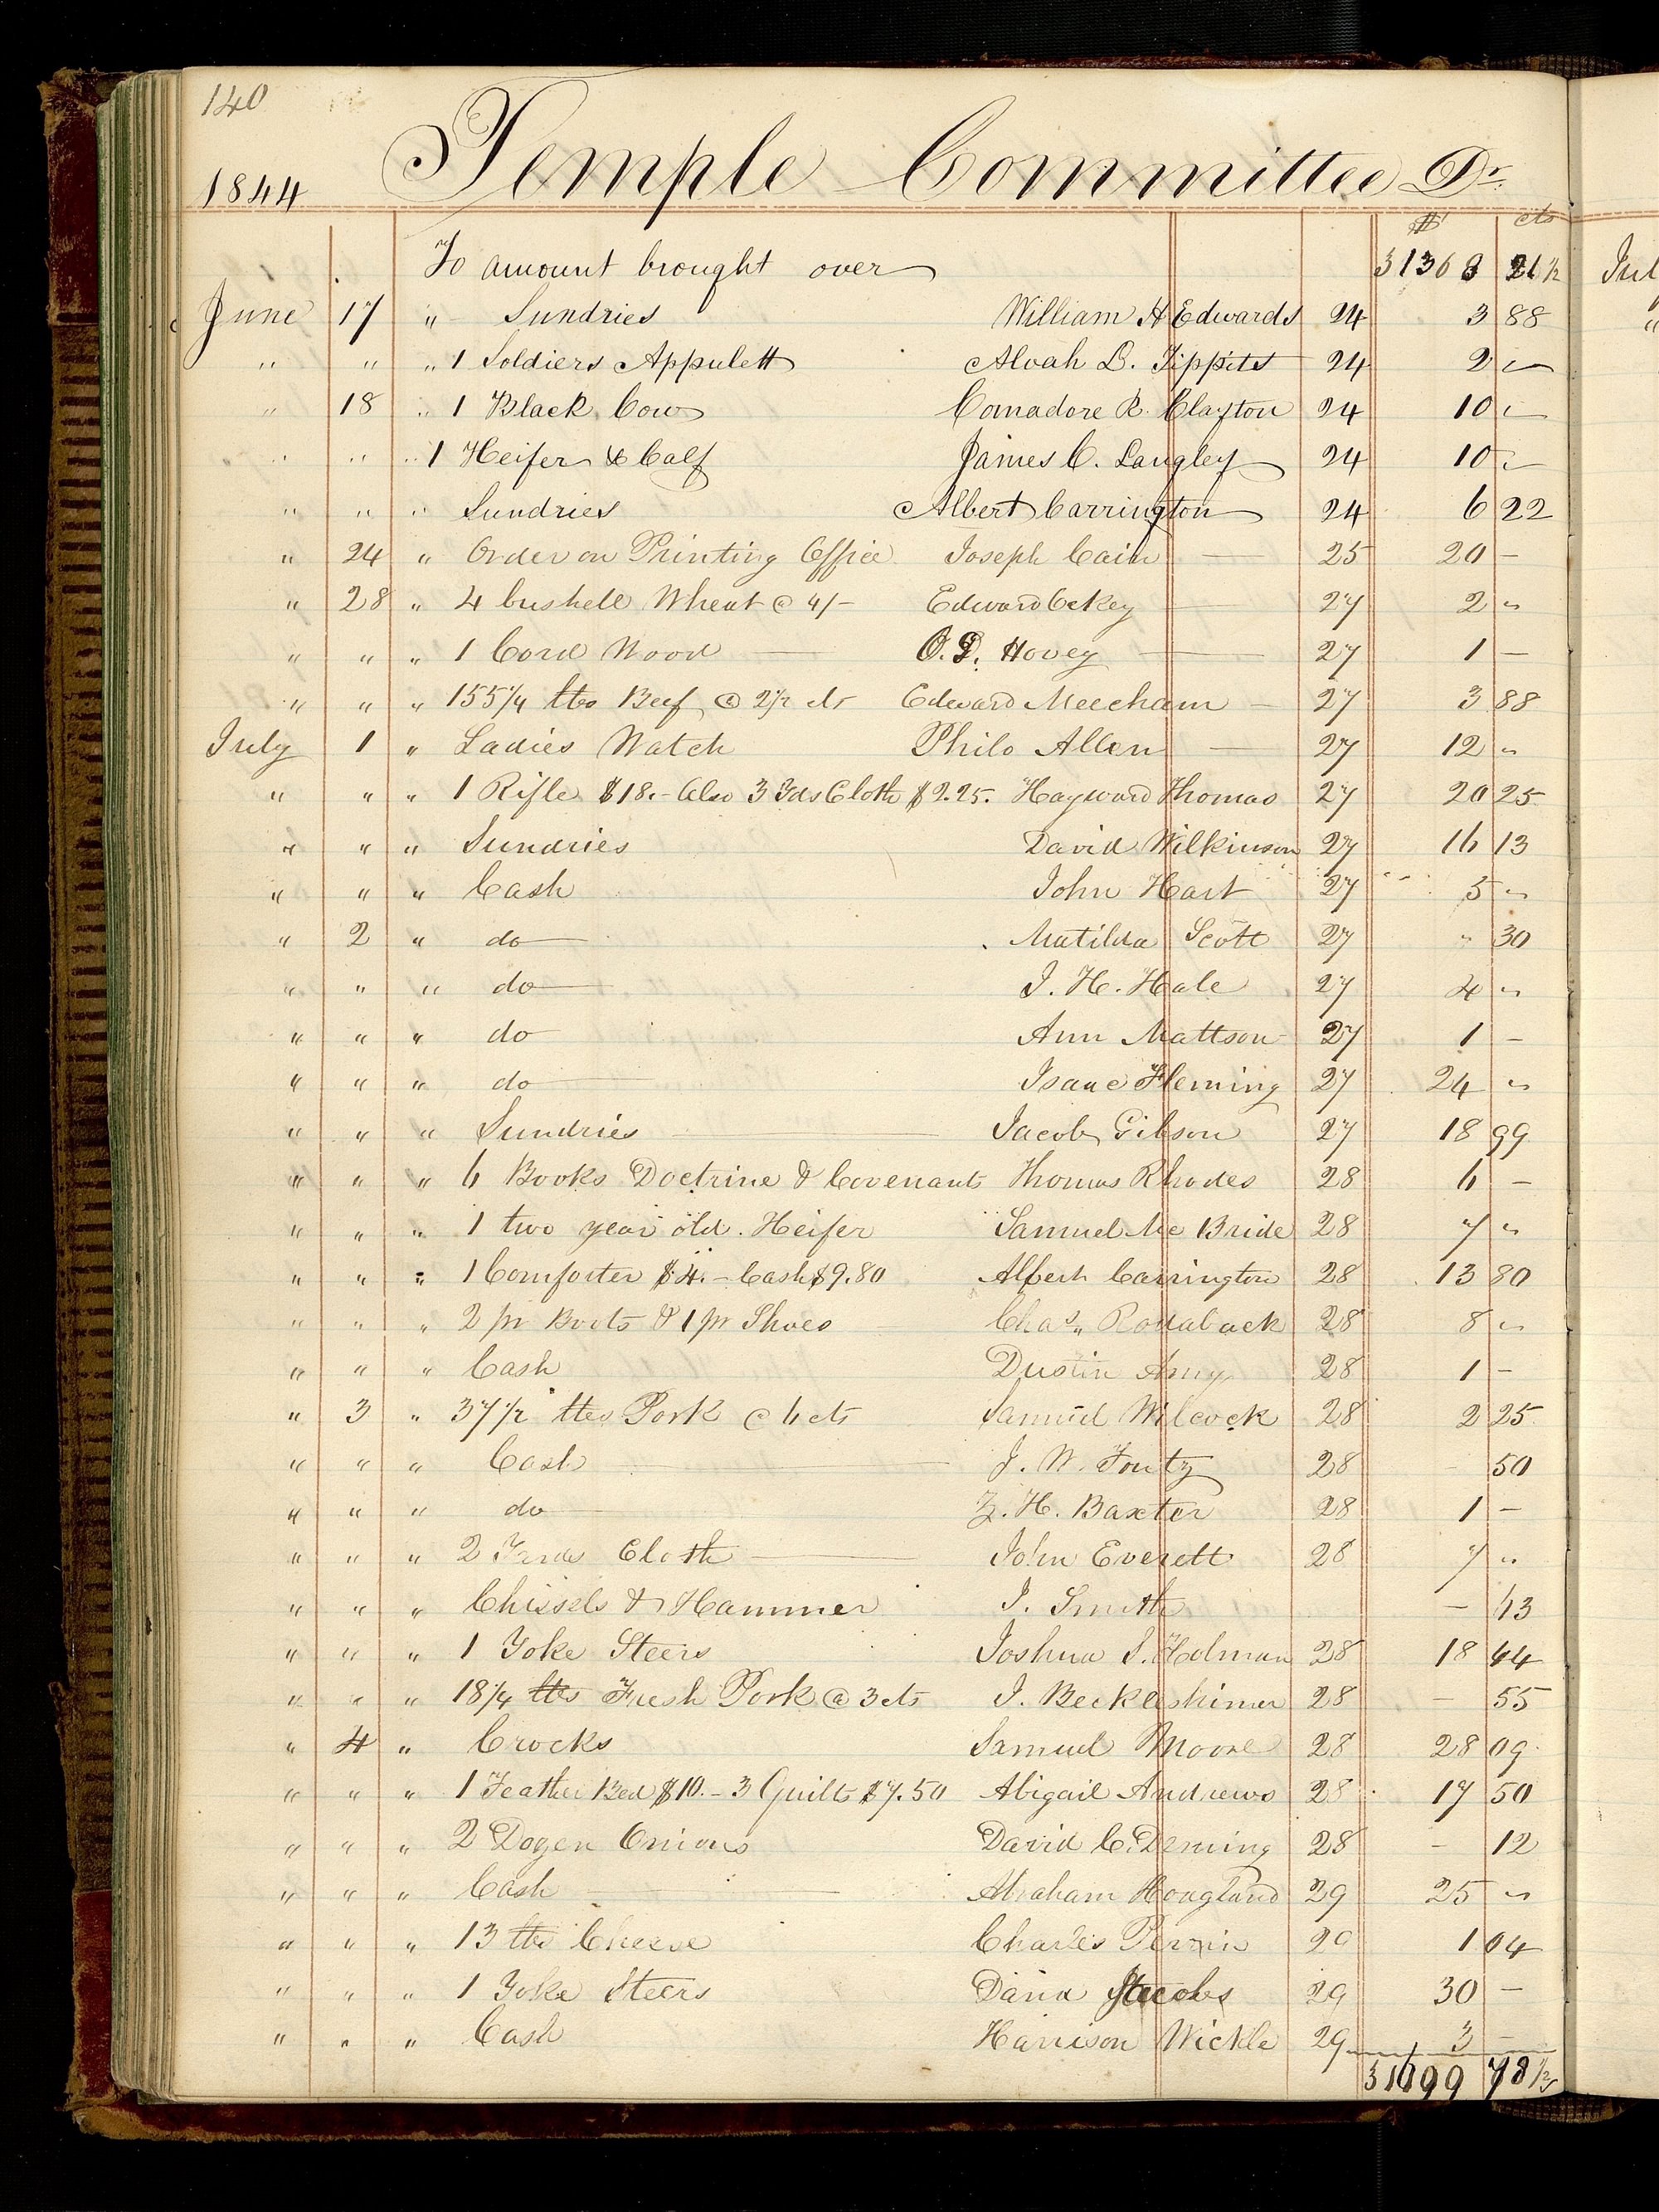 140
1844 Temple Committee Dr.
$ cts
To amount brought over 31368 21½ Jul
June 17 " Sundries William H Edwards 24 3 88
" " " 1 Soldiers Appulett Alvah L. Tippits 24 2 "
" 18 " 1 Black Cow Comadore R. Clayton 24 10 "
" " " 1 Heifer & Calf James C. Langley 24 10 "
" " " Sundries Albert Carrington 24 6 22
" 24 " Order on Printing Office Joseph Cain 25 20 –
" 28 " 4 bushell Wheat @ 4/– Edward Ockey 27 2 "
" " " 1 Cord Wood O. D. Hovey 27 1 –
" " " 155¼ lbs Beef @ 2½ cts Edward Meecham – 27 3 88
July 1 " Ladies Watch Philo Allen 27 12 "
" " " 1 Rifle $18.– Also 3 Yds Cloth $2.25. Hayward Thomas 27 20 25
" " " Sundries David Wilkinson 27 16 13
" " " Cash John Hart 27 5 "
" 2 " do Matilda Scott 27 " 30
" " " do J. H. Hale 27 4 "
" " " do Ann Mattson 27 1 –
" " " do Isaac Fleming 27 24 "
" " " Sundries Jacob Gibson 27 18 99
" " " 6 Books Doctrine & Covenants Thomas Rhodes 28 6 –
" " " 1 two year old Heifer Samuel Mc Bride 28 7 "
" " " 1 Comforter $4.– Cash $9.80 Albert Carrington 28 13 80
" " " 2 pr Boots & 1 pr Shoes Chas. 28 8 "
" " " Cash Dustin Amy 28 1 –
" 3 " 37½ lbs Pork @ 6 cts Samuel Wilcock 28 2 25
" " " Cash J. W. Foutz 28 – 50
" " " do Z. H. Baxter 28 1 –
" " " 2 Yards Cloth John Everett 28 7 "
" " " Chissels & Hammer J. Smith – 63
" " " 1 Yoke Steers Joshua S. Holman 28 18 44
" " " 18¼ lbs Fresh Pork @ 3 cts J. 28 – 55
" 4 " Crocks Samuel Moore 28 28 09
" " " 1 Feather Bed $10.– 3 Quilts $7.50 Abigail Andrews 28 17 50
" " " 2 Dozen Onions David C. Deming 28 – 12
" " " Cash Abraham Hoagland 29 25 "
" " " 13 lbs Cheese Charles Perrin 29 1 04
" " " 1 Yoke Steers David 29 30 –
" " " Cash Harrison Wickle 29 3 –
78½